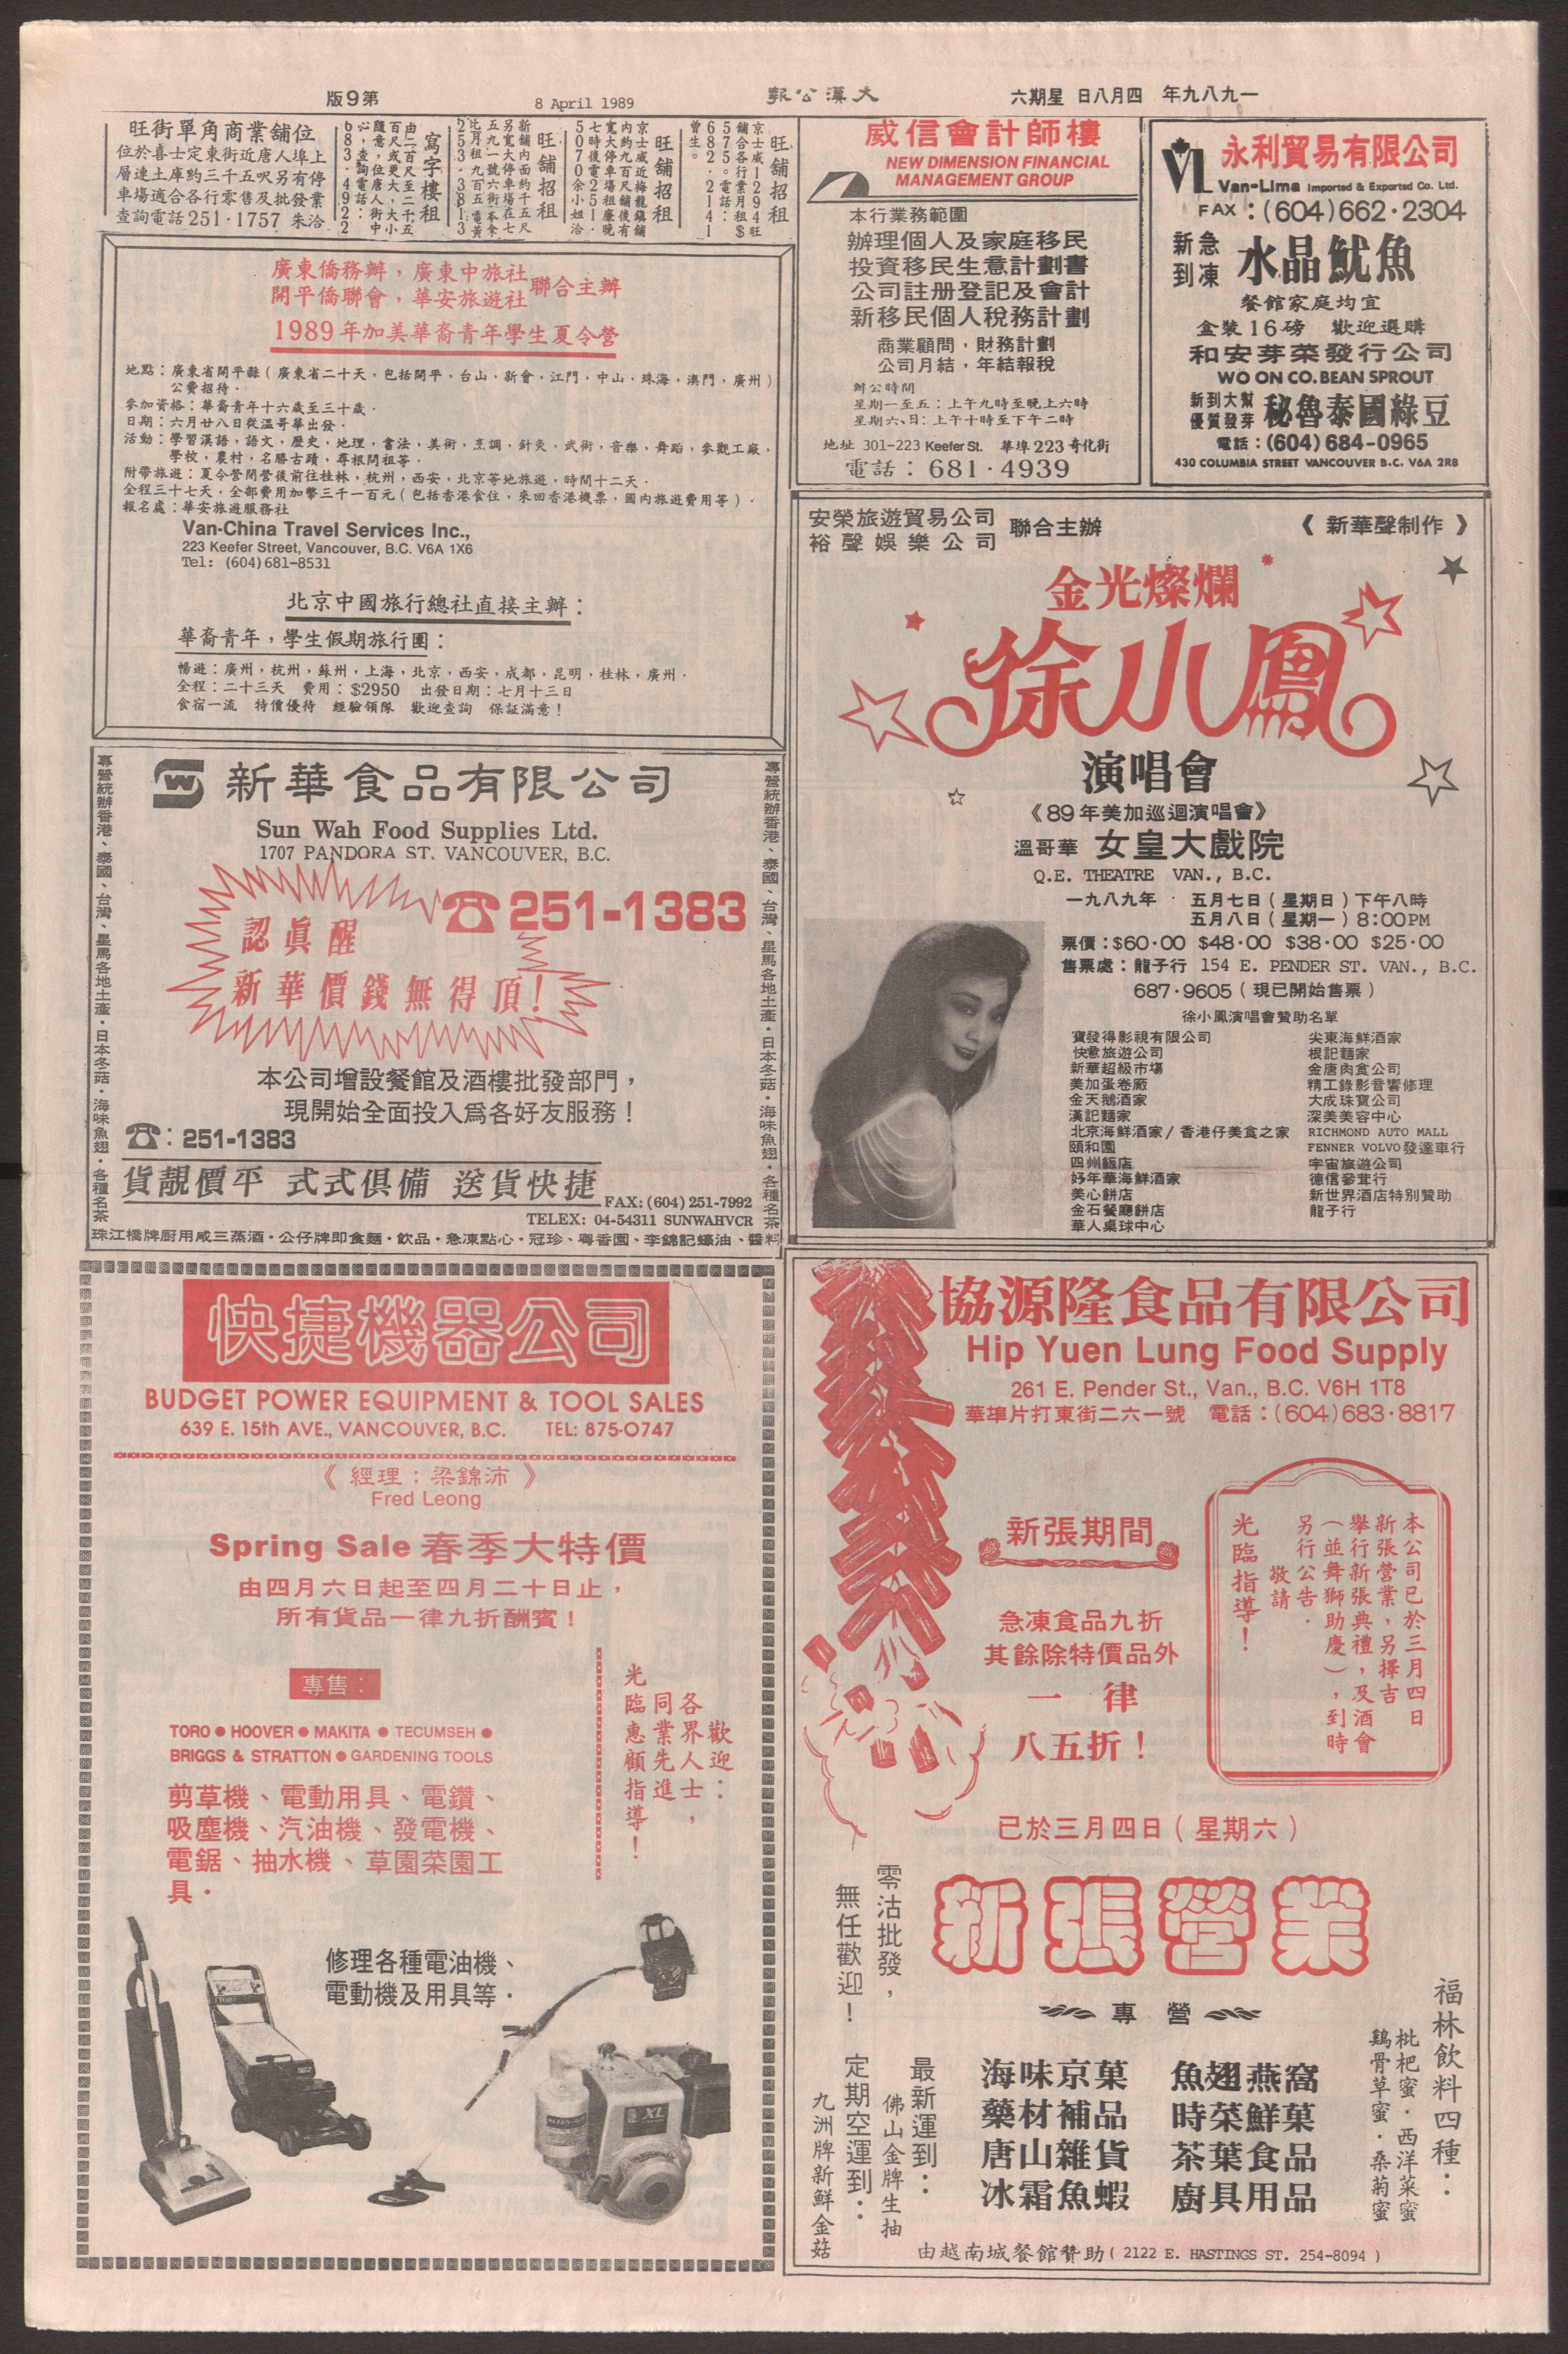 一九八九年 四月八日 星期六
大漢公報
8 April 1989
第9版
旺街單角商業舖位
位於喜士定東街近唐人埠上
層連土庫約三千五呎另有停
車場適合各行零售及批發業
查詢電話251·1757 朱洽
寫字樓租
由二百尺至二千五
百尺或更大，大小
隨意，位唐人街中
心，查詢電話：
683·4922
旺舖招租
新舖內面約千五尺
另寬大停車場在七
五九一號六街本拿
比月租九百五電黃
253·3813
旺舖招租
京士威近梅龍鎮舖
內約九百尺舖後有
寬大停車場租廉晚
七時後電251·
5070余小姐洽
旺舖招租
京士威1294旺
舖合各行業月租$
575。電話：
682·2141
曾生。
威信會計師樓
NEW DIMENSION FINANCIAL
MANAGEMENT GROUP
本行業務範圍
辦理個人及家庭移民
投資移民生意計劃書
公司註册登記及會計
新移民個人稅務計劃
商業顧問，財務計劃
公司月結，年結報稅
辦公時間
星期一至五：上午九時至晚上六時
星期六、日：上午十時至下午二時
地址 301-223 Keefer St. 華埠223奇化街
電話：681·4939
永利貿易有限公司
Van-Lima Imported & Exported Co. Ltd.
FAX：(604)662·2304
新到
急凍
水晶魷魚
餐館家庭均宜
盒裝16磅 歡迎選購
和安芽菜發行公司
WO ON CO. BEAN SPROUT
新到大幫
優質發芽
秘魯泰國綠豆
電話：(604)684-0965
430 COLUMBIA STREET VANCOUVER B.C. V6A 2R8
廣東僑務辦，廣東中旅社
開平僑聯會，華安旅遊社
聯合主辦
1989年加美華裔青年學生夏令營
地點：廣東省開平縣（廣東省二十天，包括開平，台山，新會，江門，中山，珠海，澳門，廣州）
公費招待．
參加資格：華裔青年十六歲至三十歲．
日期：六月廿八日從溫哥華出發．
活動：學習漢語，語文，歷史，地理，書法，美術，烹調，針灸，武術，音樂，舞蹈，參觀工廠，
學校，農村，名勝古蹟，尋根問祖等．
附帶旅遊：夏令營閉營後前往桂林，杭州，西安，北京等地旅遊，時間十二天．
全程三十七天，全部費用加幣三千一百元（包括香港食住，來回香港機票，國內旅遊費用等）．
報名處：華安旅遊服務社
Van-China Travel Services Inc.,
223 Keefer Street, Vancouver, B.C. V6A 1X6
Tel: (604)681-8531
北京中國旅行總社直接主辦：
華裔青年，學生假期旅行團：
暢遊：廣州，杭州，蘇州，上海，北京，西安，成都，昆明，桂林，廣州．
全程：二十三天 費用：$2950 出發日期：七月十三日
食宿一流 特價優待 經驗領隊 歡迎查詢 保証滿意！
安榮旅遊貿易公司
裕聲娛樂公司
聯合主辦
《新華聲制作》
金光燦爛
徐小鳳
演唱會
《89年美加巡迴演唱會》
溫哥華 女皇大戲院
Q.E. THEATRE VAN., B.C.
一九八九年 五月七日（星期日）下午八時
五月八日（星期一）8:00PM
票價：$60·00 $48·00 $38·00 $25·00
售票處：龍子行 154 E. PENDER ST. VAN., B.C.
687·9605（現已開始售票）
徐小鳳演唱會贊助名單
寶發得影視有限公司
快意旅遊公司
新華超級市場
美加蛋卷廠
金天鵝酒家
漢記麵家
北京海鮮酒家/香港仔美食之家
頤和園
四州飯店
好年華海鮮酒家
美心餅店
金石餐廳餅店
華人桌球中心
尖東海鮮酒家
根記麵家
金唐肉食公司
精工錄影音響修理
大成珠寶公司
深美美容中心
RICHMOND AUTO MALL
FENNER VOLVO發達車行
宇宙旅遊公司
德信參茸行
新世界酒店特別贊助
龍子行
專營統辦香港、泰國、台灣、星馬各地土產．日本冬菇．海味魚翅．各種名茶
新華食品有限公司
Sun Wah Food Supplies Ltd.
1707 PANDORA ST. VANCOUVER, B.C.
☎251-1383
認真醒
新華價錢無得頂！
本公司增設餐館及酒樓批發部門，
現開始全面投入為各好友服務！
☎：251-1383
貨靚價平 式式俱備 送貨快捷
FAX:(604)251-7992
TELEX: 04-54311 SUNWAHVCR
專營統辦香港、泰國、台灣、星馬各地土產．日本冬菇．海味魚翅．各種名茶
珠江橋牌厨用咸三蒸酒．公仔牌即食麵．飲品．急凍點心．冠珍、粵香園、李錦記蠔油、醬料
快捷機器公司
BUDGET POWER EQUIPMENT & TOOL SALES
639 E. 15th AVE., VANCOUVER, B.C. TEL: 875-0747
《經理：梁錦沛》
Fred Leong
Spring Sale 春季大特價
由四月六日起至四月二十日止，
所有貨品一律九折酬賓！
專售：
TORO ● HOOVER ● MAKITA ● TECUMSEH ●
BRIGGS & STRATTON ● GARDENING TOOLS
剪草機、電動用具、電鑽、
吸塵機、汽油機、發電機、
電鋸、抽水機、草園菜園工
具．
歡迎：
各界人士，
同業先進
光臨惠顧指導！
修理各種電油機、
電動機及用具等．
XL
協源隆食品有限公司
Hip Yuen Lung Food Supply
261 E. Pender St., Van., B.C. V6H 1T8
華埠片打東街二六一號 電話：(604)683·8817
新張期間
急凍食品九折
其餘除特價品外
一 律
八五折！
本公司已於三月四日
新張營業，另擇吉
舉行新張典禮，及酒會
（並舞獅助慶），到時
另行公告．
敬請
光臨指導！
已於三月四日（星期六）
新張營業
零沽批發，
無任歡迎！
專 營
海味京菓 魚翅燕窩
藥材補品 時菜鮮菓
唐山雜貨 茶葉食品
冰霜魚蝦 廚具用品
福林飲料四種：
枇杷蜜．西洋菜蜜
鷄骨草蜜．桑菊蜜
最新運到：
佛山金牌生抽
定期空運到：
九洲牌新鮮金菇
由越南城餐館贊助（2122 E. HASTINGS ST. 254-8094）